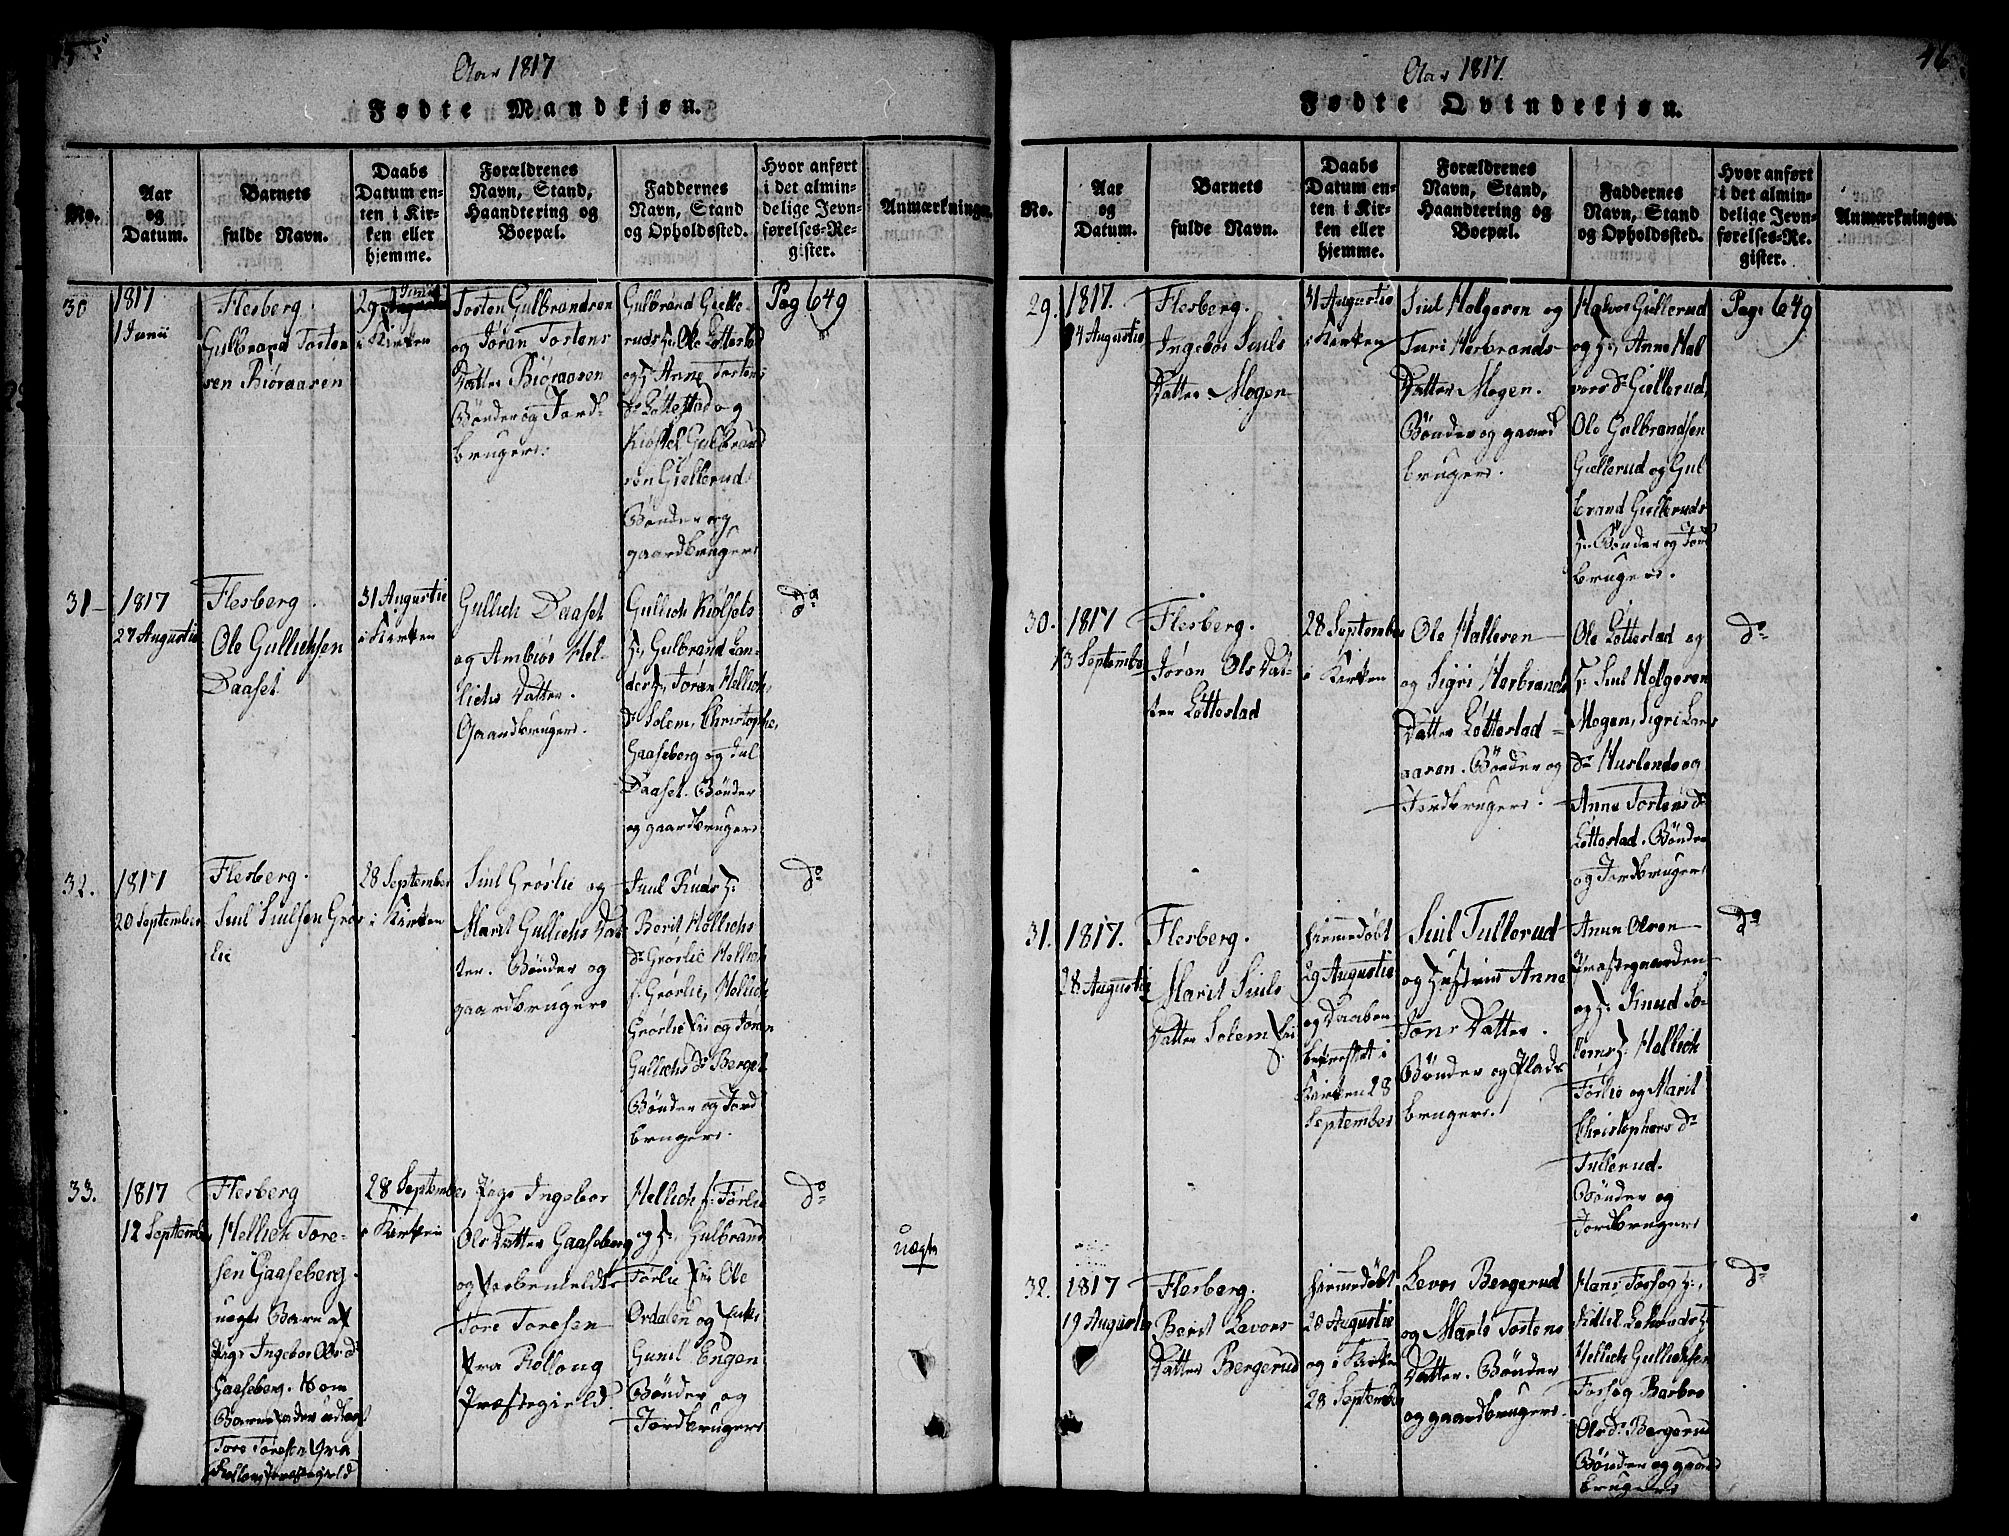 Aar 1817
Fødte Mandkjøn.
No.
Aar
og
Datum.
Barnets
fulde Navn.
Daabs
Datum en-
ten i Kir-
ken eller
hjemme.
Forældrenes
Navn, Stand,
Haandtering og
Boepæl.
Faddernes
Navn, Stand
og Opholdssted.
Hvor anført
i det almin-
delige Jevn-
førelses-Re-
gister.
Anmærkninger.
30
1817
1 Junii
Flesberg.
Gulbrand Tosten
sen Bjøraasen
29 Junii
i Kirken
Tosten Gulbrandsen
og Jøran Tostens
Datter Bjøraasen
Bønder og Jord-
brugere.
Gulbrand Gielle-
ruds H: Ole Løttestad
og H: Anne Tostens
Dr Løttestad og
Kjøstel Gulbrand
sen Giellerud
Bønder og
gaardbrugere
Pag 649
31-
1817
27 Augustii
Flesberg.
Ole Gullichsen
Daaset
31 Augustii
i Kirken
Gullich Daaset
og Ambiør Hel-
lichs Datter.
Gaardbrugere.
Gullich Kjølsets
H; Gulbrand Lan-
ders H; Jøran Hellichs
Dr Solem, Christopher
Gaaseberg og Juel
Daaset. Bønder
og gaardbrugere
Do
32.
1817
20 September
Flesberg.
Siul Siulsen Grøs
lie
28 September
i Kirken
Siul Grøslie og
Marit Gullichs Dat
ter. Bønder og
gaardbrugere
Juul Ruds H:
Berit Hellichs
Dr Grøslie Hellich
s: Grøslie, Hellich
Grøslie Eie og Jøran
Gullichs Dr Berget
Bønder og Jord
brugere.
Do
33.
1817
12 September
Flesberg
Hellich Tore-
sen Gaaseberg.
uægte Barn af
Pige Ingebor Ols Dr
Gaaseberg. Som
Barnefader udlagt
Tore Toresen fra
Rollong Præstegield
28 September
i Kirken
Pige Ingebor
Ols Datter Gaaseberg
og forbemeldte
Tore Toresen
fra Rollong
Præstegield.
Hellich s: Førlie
og H; Gulbrand
Førlie Eie Ole
Ørdalen og Enke
Gunil Engen
Bønder og
Jordbrugere
Do
uægte
46
Aar 1817.
Fødte Qvindekjøn.
No.
Aar
og
Datum.
Barnets
fulde Navn.
Daabs
Datum en-
ten i Kir-
ken eller
hjemme.
Forældrenes
Navn, Stand,
Haandtering og
Boepæl.
Faddernes
Navn, Stand
og Opholdssted.
Hvor anført
i det almin-
delige Jevn-
førelses-Re-
gister.
Anmærkninger.
29.
1817.
Augustii
Flesberg.
Ingebor Siuls
Datter Mogen
31 Augustii
i Kirken
Siul Holgersen og
Turi Herbrands
Datter Mogen.
Bønder og gaard
brugere.
Halvor Giellerud
og H; Anne Hal
vors Dr Giellerud,
Ole Gulbrandsen
Giellerud og Gul
brand Gielleruds
H. Bønder og Jord
brugere.
Pag: 649
30.
1817
13 September
Flesberg.
Jøran Ols Dat-
ter Løttestad
28 September
i Kirken
Ole Halvorsen
og Sigri Herbrands
Datter Løttestad-
aasen. Bønder og
Jordbrugere.
Ole Løttestad og
H: Siul Holgersen
Mogen, Sigri Lars
Dr Huslende og
Anne Tostens Dr
Løttestad. Bønder
og Jordbrugere
Do
31.
1817.
28 Augustii
Flesberg.
Marit Siuls
Datter Solem Eie
hiemmedøbt
29 Augustii
og Daaben
bekræftet i
Kirken 28
September
Siul Tullerud
og Hustrue Anne
Jons Datter.
Bønder og Plads
brugere.
Anun Olsen
Præstegaarden
og H: Knud So-
lems H: Hellich
Førlie og Marit
Christophers Dr
Tullerud.
Bønder og
Jordbrugere
Do
32.
1817
19 Augustii
Flesberg.
Berit Levors
Datter Bergerud
hiemmedøbt
28 Augustii
og i Kirken
28 September
Levor Bergerud
og Marte Tostens
Datter. Bønder
og gaardbrugere.
Hans Fosseg H;
Hellich Gullichsen
Fosseg Barbro
Ols Dr Bergerud
Bønder og gaard
brugere
Do